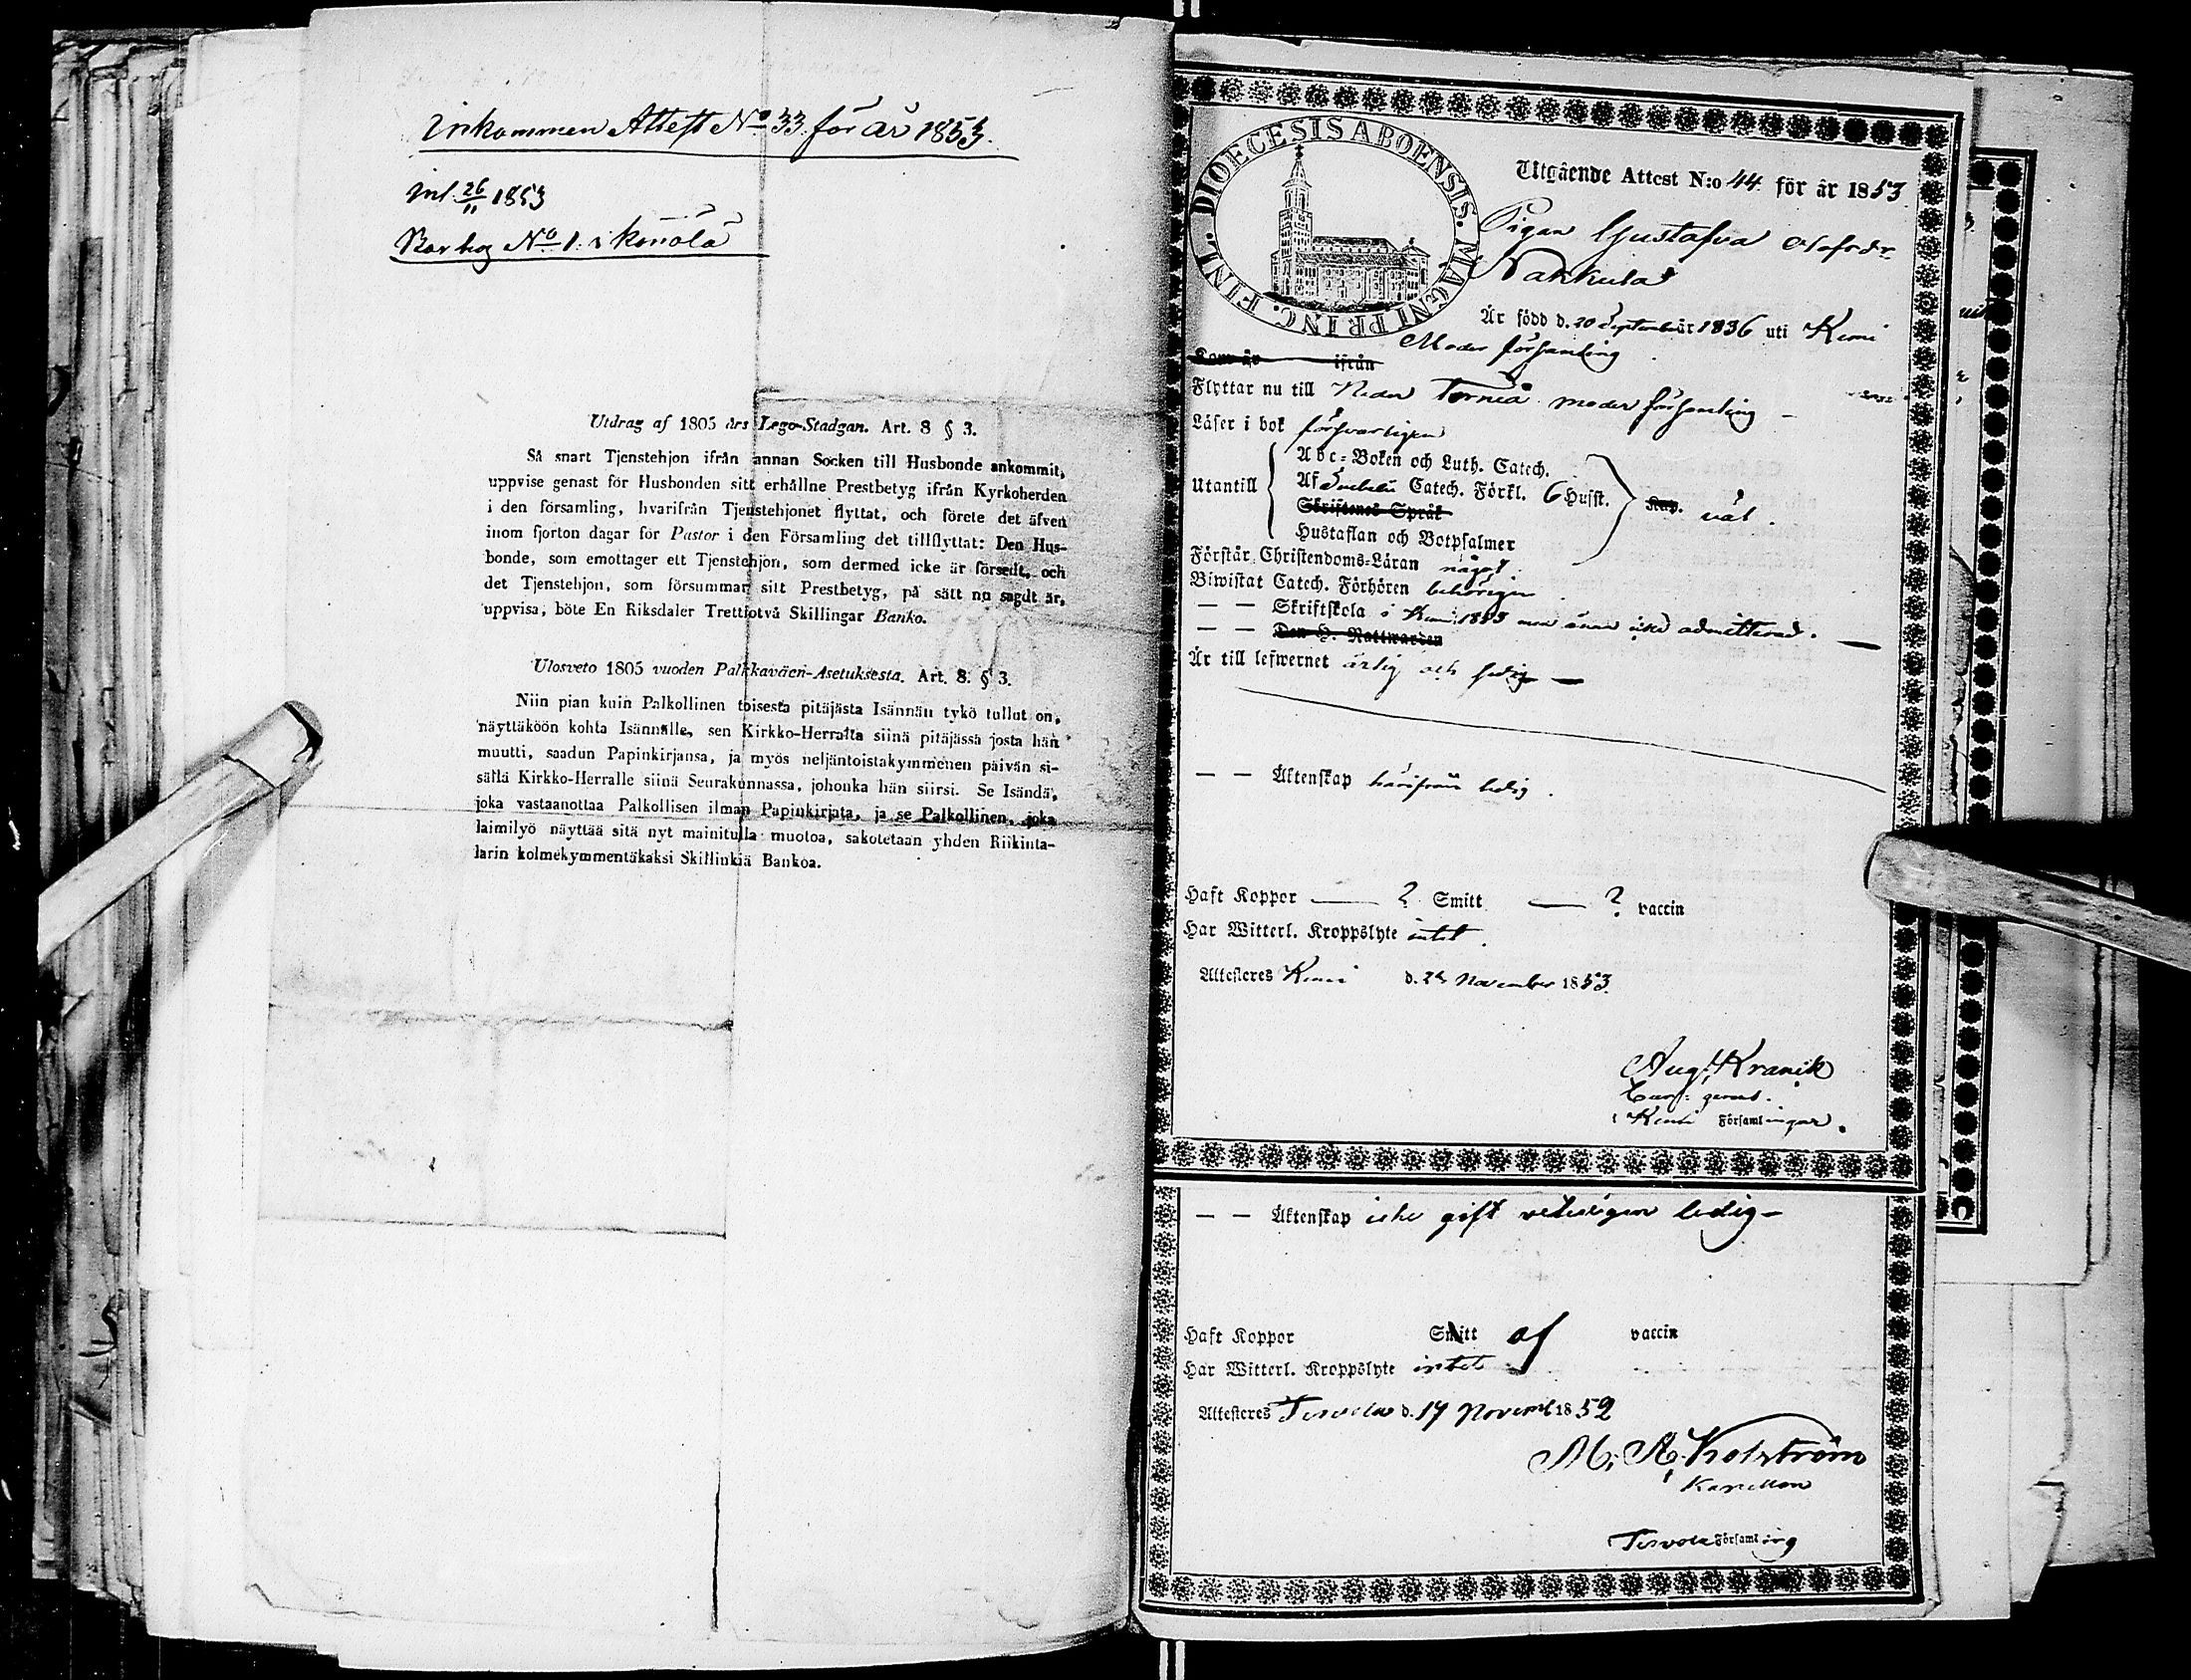 Inkommen Attest No 33. för år 1853.
Inl. 26/11 1853
No 1. i
Utdrag af 1805 års Lego-Stadgan. Art. 8 § 3.
Så snart Tjenstehjon ifrån annan Socken till Husbonde ankommit,
uppvise genast för Husbonden sitt erhållne Prestbetyg ifrån Kyrkoherden
i den församling, hvarifrån Tjenstehjonet flyttat, och förete det äfven
inom fjorton dagar för Pastor i den Församling det tillflyttat: Den Hus-
bonde, som emottager ett Tjenstehjon, som dermed icke är försedt, och
det Tjenstehjon, som försummar sitt Prestbetyg, på sätt nu sagdt är,
uppvisa, böte En Riksdaler Trettiotvå Skillingar Banko.
Ulosveto 1805 vuoden Palkkaväen-Asetuksesta. Art. 8. § 3.
Niin pian kuin Palkollinen toisesta pitäjästa Isännän tykö tullut on,
näyttäköön kohta Isännälle, sen Kirkko-Herralta siinä pitäjässä josta hän
muutti, saadun Papinkirjansa, ja myös neljäntoistakymmenen päivän si-
sällä Kirkko-Herralle siinä Seurakunnassa, johonka hän siirsi. Se Isändä,
joka vastaanottaa Palkollisen ilman Papinkirjata, ja se Palkollinen, joka
laimilyö näyttää sitä nyt mainitulla muotoa, sakotetaan yhden Riikinta-
larin kolmekymmentäkaksi Skillinkiä Bankoa.
DIOECESIS ABOENSIS. MAGNI PRINC. FINL.
Utgående Attest N:o 44 för år 1853.
Pigan Gustafva Olofsdr
Nakkula
Är född d. 20 September år 1836 uti Kemi
Moder församling
Kom år ifrån
Flyttar nu till Neder Torneå moder församling –
Läser i bok försvarligen
Abc-Boken och Luth. Catech.
Utantill Af Svebelii Catech. Förkl. 6 Husst. Kap. väl.
Skriftenes Språk
Hustaflan och Botpsalmer
Förstår Christendoms-Läran något.
Biwistat Catech. Förhören behörigen.
— — Skriftskola i Kemi 1853 men ännu icke admitterad. —
— — Den H. Nattwarden
Är till lefwernet ärlig och sedig —
— — Äktenskap härifrån ledig.
Haft Koppor — ? Smitt — ? vaccin
Har Witterl. Kroppslyte intet.
Attesteres Kemi d. 24 November 1853.
Aug. Kranck
i Kemi Församlingar.
— — Äktenskap icke gift veterligen ledig –
Haft Koppor Smitt af vaccin
Har Witterl. Kroppslyte intet
Attesteres Tervola d. 17 Novemb 1852
M. A. Kolström
Kapellan
Tervola Församling